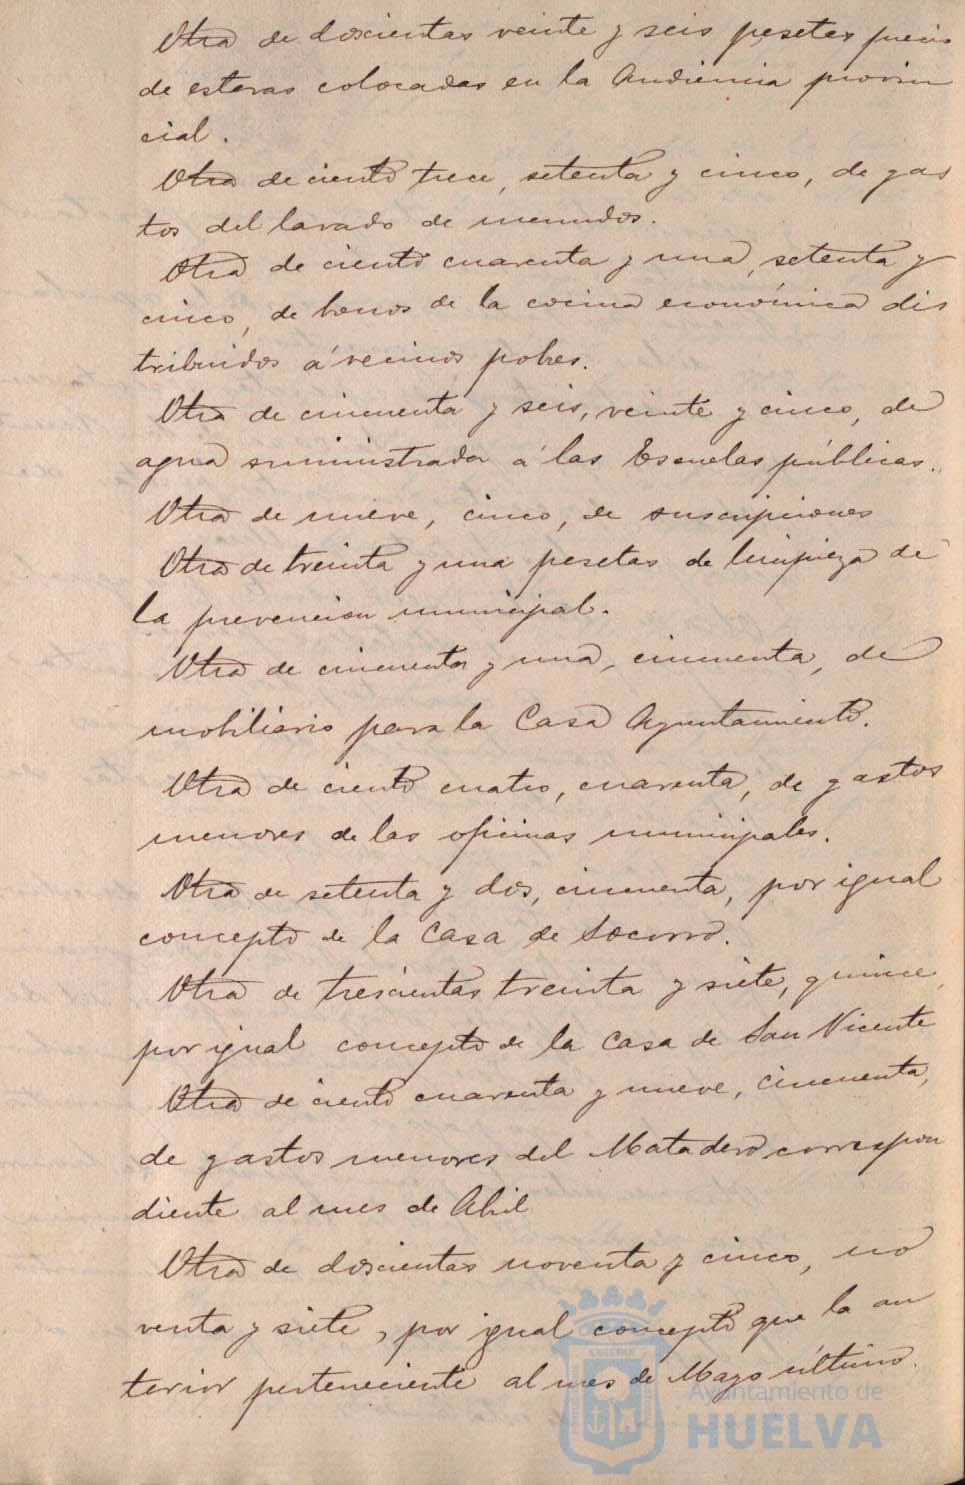 Otra de doscientas veinte y seis pesetas precio
de esteras colocadas en la Audiencia provin
cial.
Otra de ciento trece, setenta y cinco, de gas
tos del lavado de menudos.
Otra de ciento cuarenta y una, setenta y
cinco, de bonos de la cocina económica dis
tribuidos á vecinos pobres.
Otra de cincuenta y seis, veinte y cinco, de
agua suministrada á las Escuelas públicas.
Otra de nueve, cinco, de suscripciones
Otra de treinta y una pesetas de limpieza de
la prevencion municipal.
Otra de cincuenta y una, cincuenta, de
mobiliario para la Casa Ayuntamiento.
Otra de ciento cuatro, cuarenta, de gastos
menores de las oficinas municipales.
Otra de setenta y dos, cincuenta, por igual
concepto de la Casa de Socorro.
Otra de trescientas treinta y siete, quince
por igual concepto de la Casa de San Vicente
Otra de ciento cuarenta y nueve, cincuenta,
de gastos menores del Matadero correspon
diente al mes de Abril
Otra de doscientas noventa y cinco, no
venta y siete, por igual concepto que la an
terior perteneciente al mes de Mayo último.
Ayuntamiento de
HUELVA